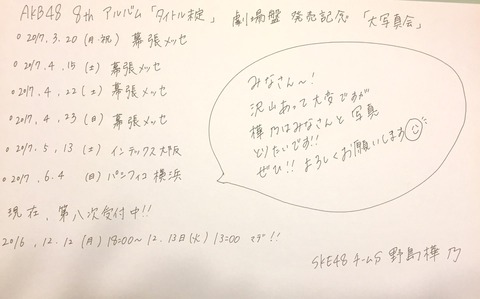 AKB48 8th アルバム「タイトル未定」 劇場盤 発売記念 「大写真会」
○ 2017.3.20 (月・祝) 幕張メッセ
○ 2017.4.15 (土) 幕張メッセ
○ 2017.4.22 (土) 幕張メッセ
○ 2017.4.23 (日) 幕張メッセ
○ 2017.5.13 (土) インテックス大阪
○ 2017.6.4 (日) パシフィコ横浜
みなさん〜!
沢山あって大変ですが
樺乃はみなさんと写真
とりたいです!!
ぜひ!! よろしくお願いします
現在、第八次受付中!!
2016.12.12 (月) 18:00〜12.13日(火) 13:00 マデ!!
SKE48 チームS 野島樺乃